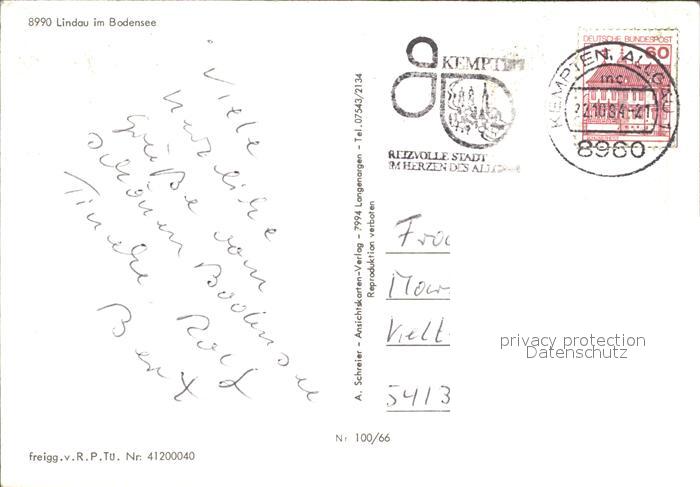 8990 Lindau im Bodensee
Viele
herzliche
Grüße vom
schönen Bodensee
Tineke Rolf
A. Schreier - Ansichtskarten-Verlag - 7994 Langenargen - Tel. 07543/2134
Reproduktion verboten
KEMPTEN
REIZVOLLE STADT
IM HERZEN DES ALLGÄUS
DEUTSCHE BUNDESPOST
60
KEMPTEN, ALLGÄU 1
mc
22.10.84-21
8960
Frau
5413
privacy protection
Datenschutz
Nr 100/66
freigg.v.R.P.TÜ. Nr: 41200040